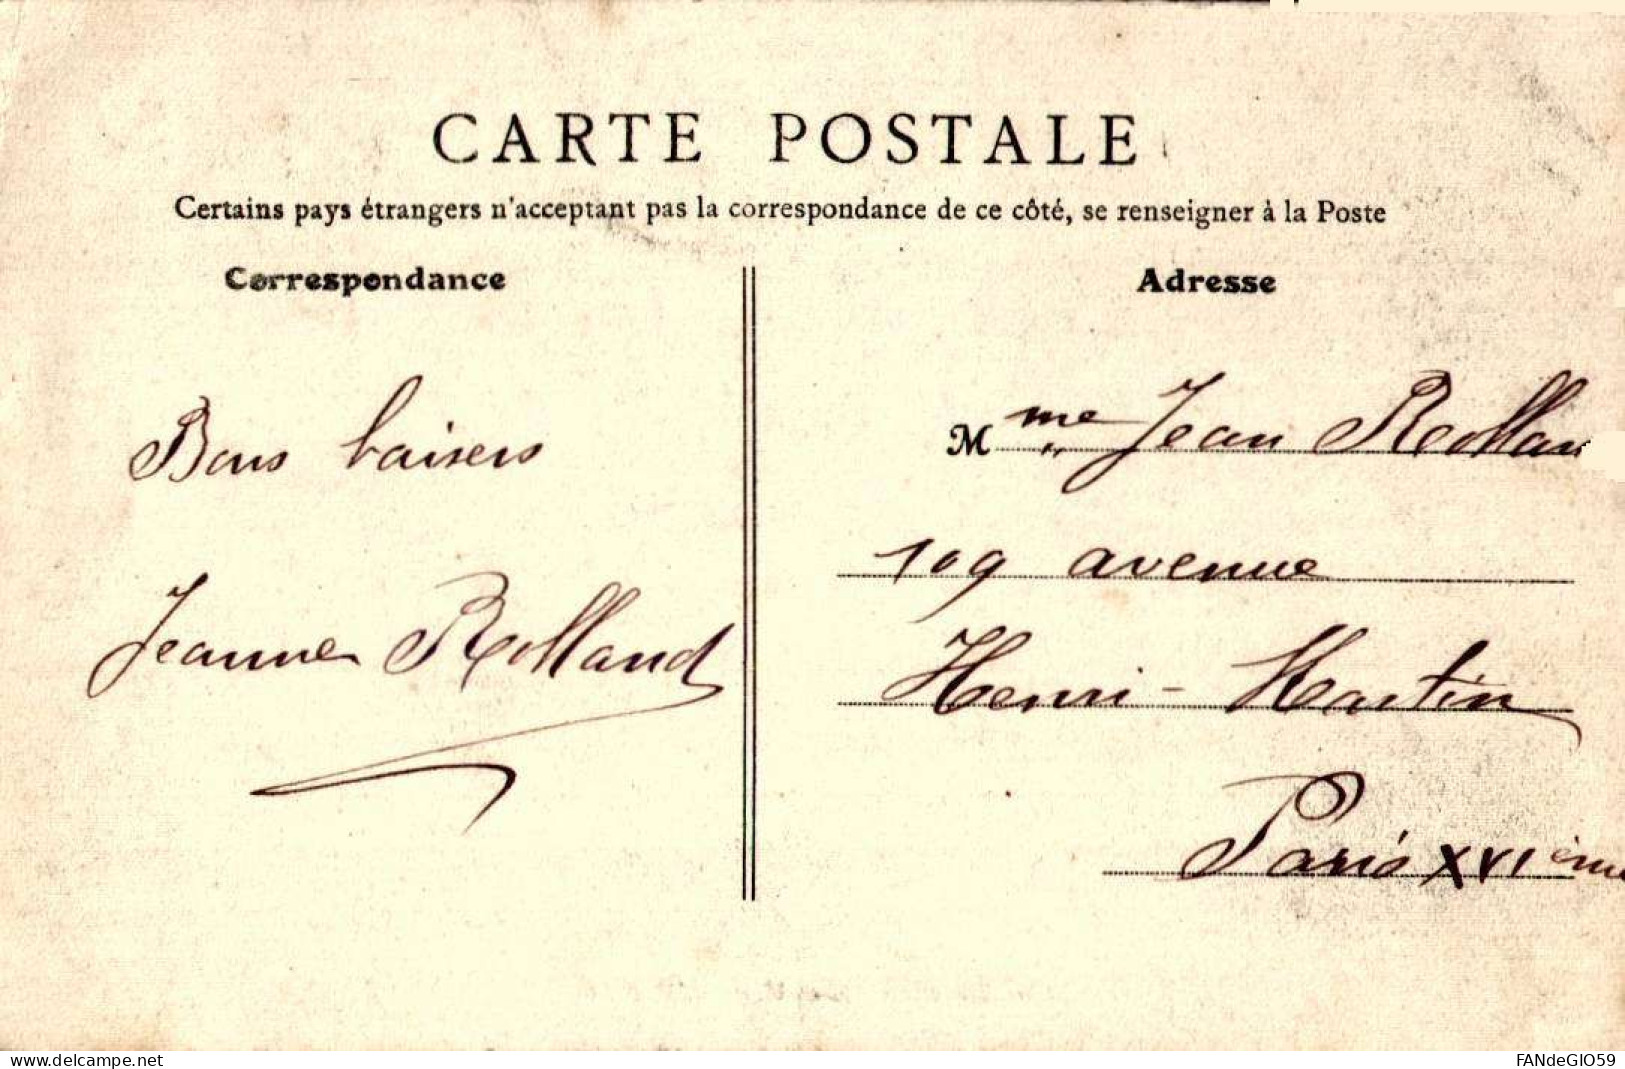 CARTE POSTALE
Certains pays étrangers n'acceptant pas la correspondance de ce côté, se renseigner à la Poste
Correspondance
Bons baisers
Jeanne Rolland
Adresse
Mme Jean Rollan
109 avenue
Henri-Martin
Paris XVIème
www.delcampe.net
FANdeGIO59